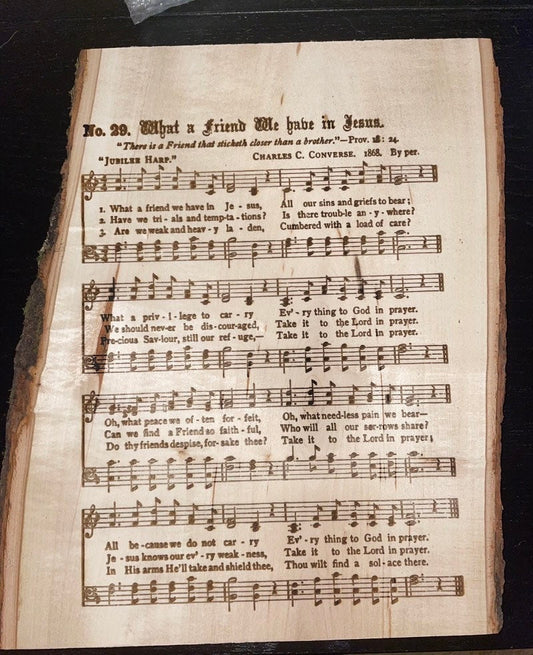 No. 29. What a Friend We have in Jesus.
"There is a Friend that sticketh closer than a brother."—Prov. 18: 24.
"JUBILEE HARP." CHARLES C. CONVERSE. 1868. By per.
1. What a friend we have in Je - sus, All our sins and griefs to bear;
2. Have we tri - als and temp-ta - tions? Is there trouble an - y - where?
3. Are we weak and heav - y la - den, Cumbered with a load of care?
What a priv - i - lege to car - ry Ev' - ry thing to God in prayer.
We should nev-er be dis-cour-aged, Take it to the Lord in prayer.
Pre-cious Sav-iour, still our ref - uge,— Take it to the Lord in prayer.
Oh, what peace we of - ten for - feit, Oh, what need-less pain we bear—
Can we find a Friend so faith - ful, Who will all our sor-rows share?
Do thy friends despise, for- sake thee? Take it to the Lord in prayer;
All be - cause we do not car - ry Ev' - ry thing to God in prayer.
Je - sus knows our ev' - ry weak - ness, Take it to the Lord in prayer.
In His arms He'll take and shield thee, Thou wilt find a sol - ace there.